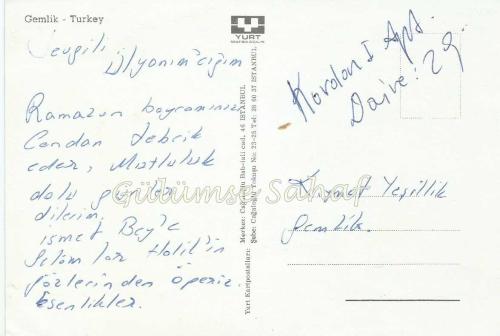 Gemlik - Turkey
Sevgili İlyanım'cığım
Ramazan bayramınızı
Candan tebrik
eder, Mutluluk
dolu günler
dilerim,
ismet Bey'e
Selamlar Halil'in
gözlerinden öperiz.
Esenlikler.
YURT
Yurt Kartpostalları:
Merkez: Cağaloğlu Bab-ıali cad. 46 ISTANBUL
Şube: Cağaloğlu Yokuşu No: 23-25 Tel: 26 60 37 ISTANBUL
Kordon I Apt.
Daire: 29
Kısmet Yeşillik
Gemlik.
Gülümse Sahaf